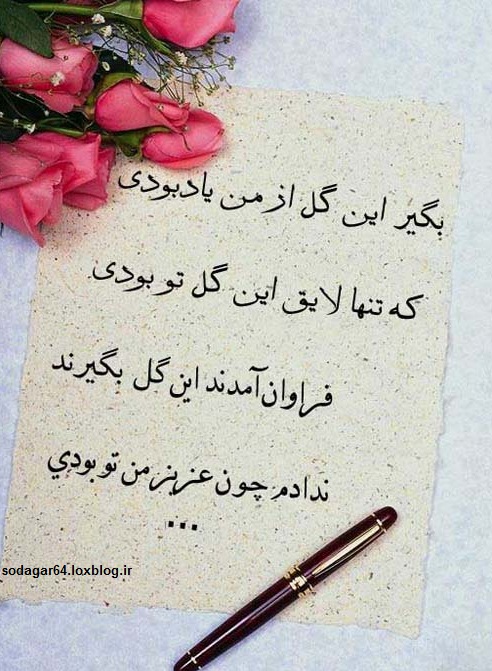 بگیر این گل از من یادبودی
که تنها لایق این گل تو بودی
فراوان آمدند این گل بگیرند
ندادم چون عزیز من تو بودي
...
sodagar64.loxblog.ir